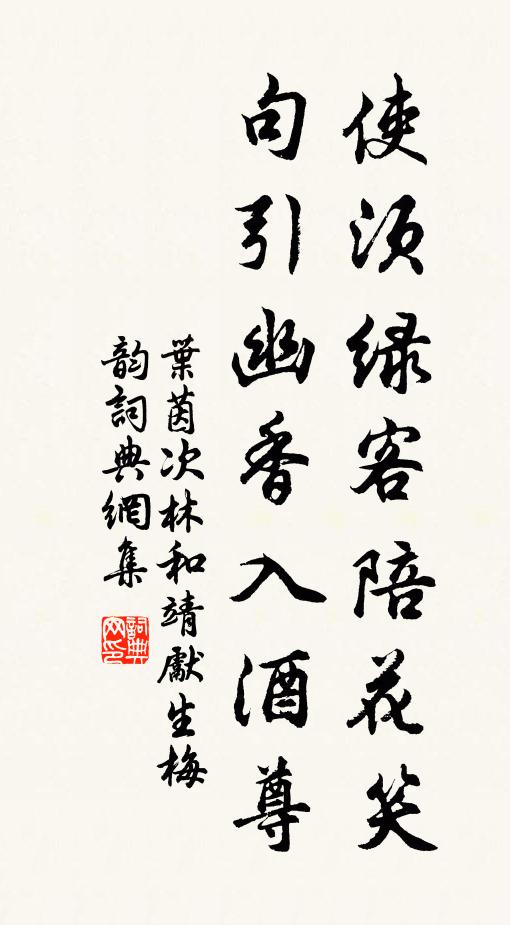 使須緑客陪花笑
句引幽香入酒尊
葉茵次林和靖獻生梅
韵詞典網集
詞典网印